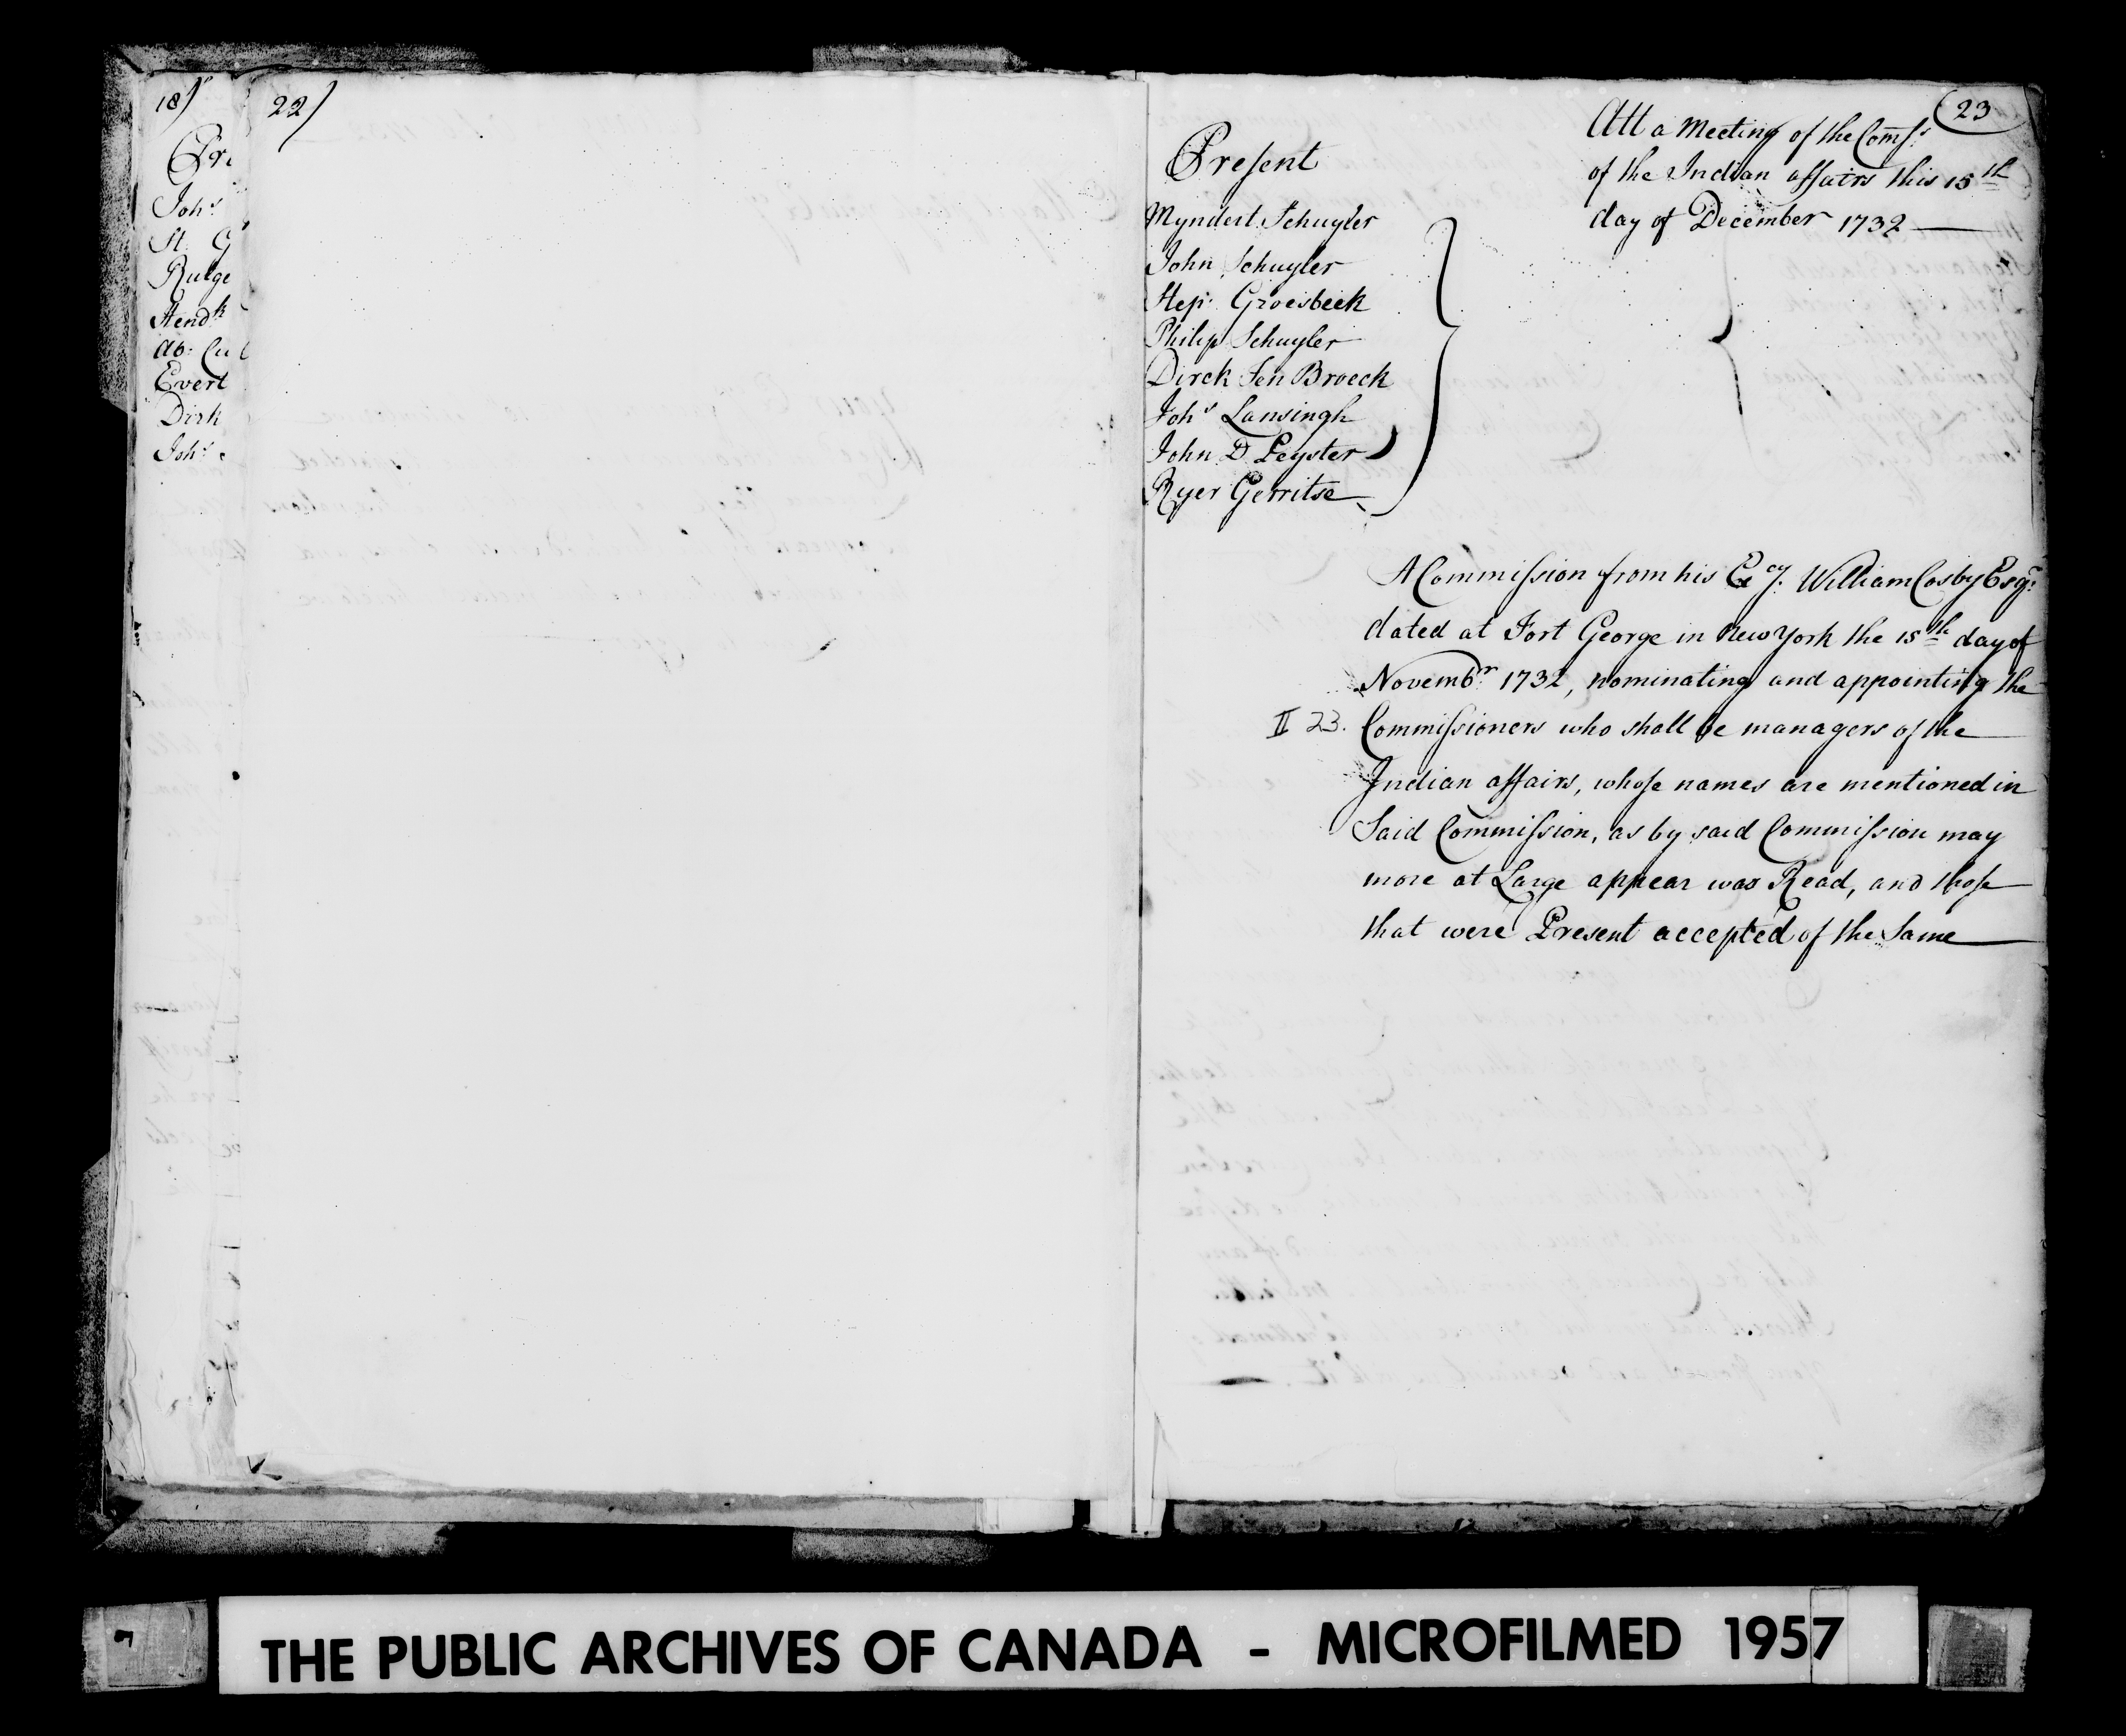 18)
Pre
Johs
St. G
Rutge
Hendk
Ab: Cu
Evert
Dirk
Johs
22)
23
Att a Meeting of the Comſs.
of the Indian affairs this 15th
day of December 1732
Preſent
Myndert Schuyler
John Schuyler
Step: Groesbeek
Philip Schuyler
Dirck Ten Broeck
Johs Lansingh
John D Peyster
Ryer Gerritse
A Commiſsion from his Excy. William Cosby Esqr.
dated at Fort George in New York the 15th day of
Novembr 1732, nominating and appointing the
II 23. Commiſsioners who shall be managers of the
Indian affairs, whoſe names are mentioned in
Said Commiſsion, as by said Commiſsion may
more at Large appear was Read, and thoſe
that were Present accepted of the Same
THE PUBLIC ARCHIVES OF CANADA - MICROFILMED 1957